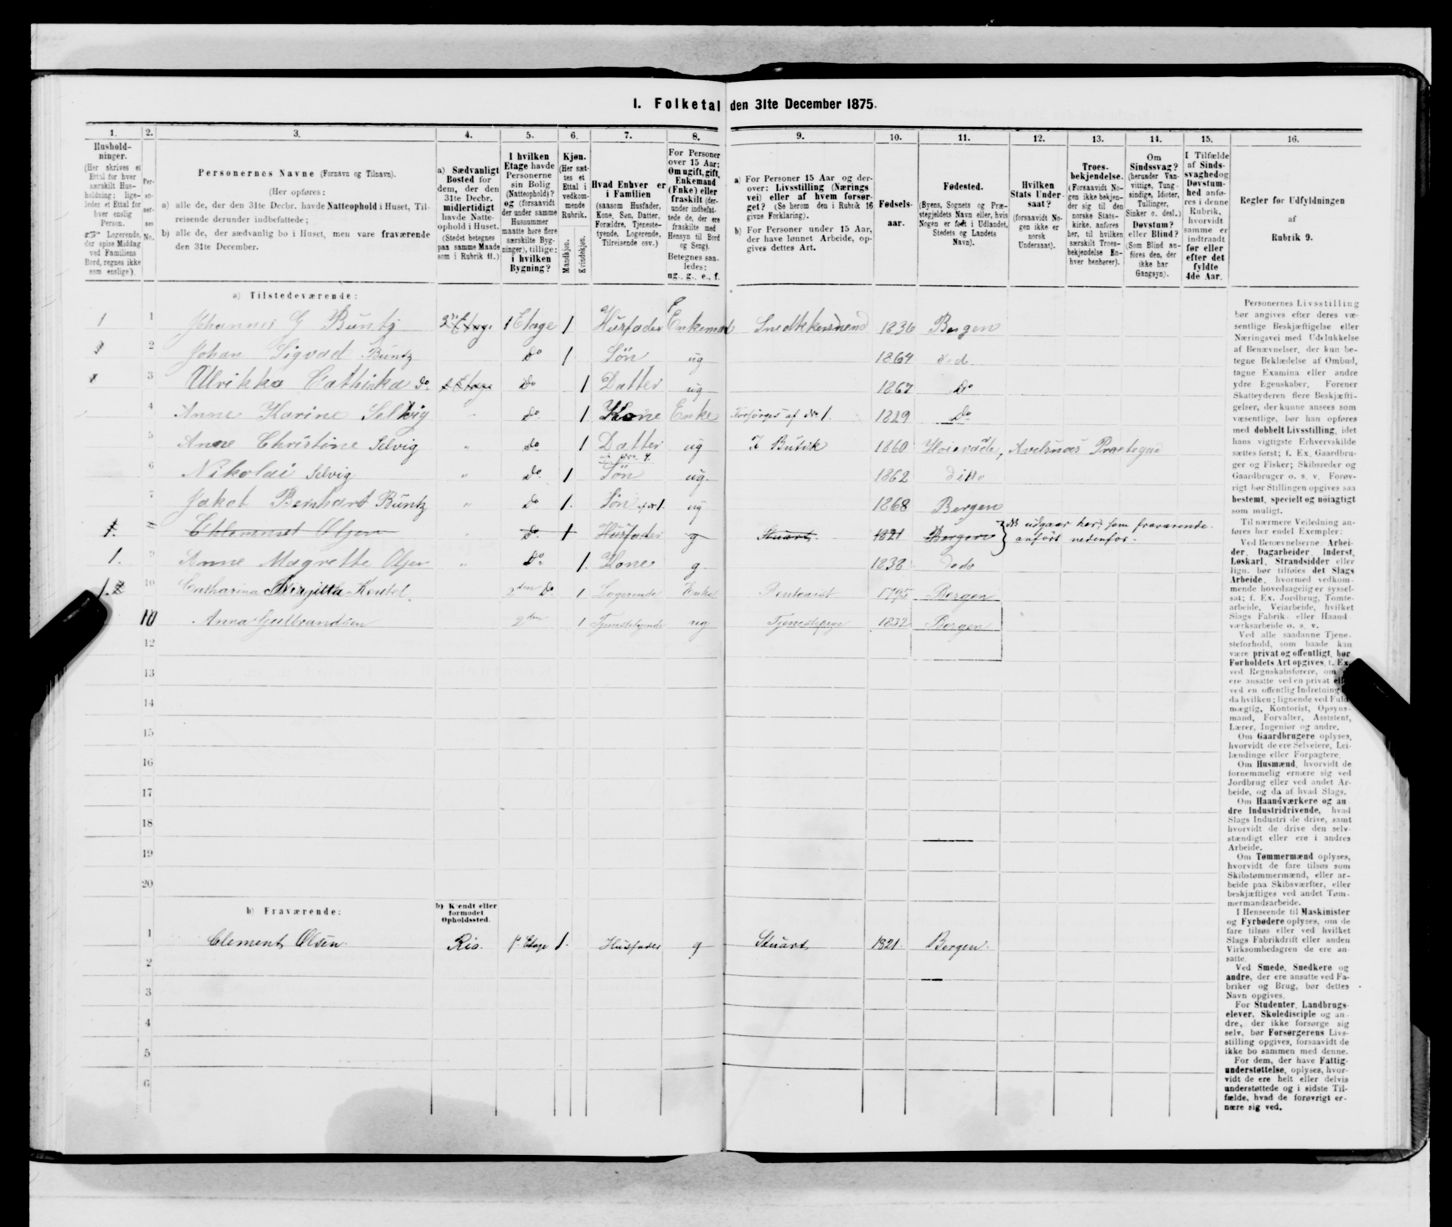 I. Folketal den 31te December 1875.
1. 2. 3. 4. 5. 6. 7. 8. 9. 10. 11. 12. 13. 14. 15. 16.
Hushold-
ninger.
(Her skrives et
Ettal for hver
særskilt Hus-
holdning; lige-
ledes et Ettal for
hver enslig
Person.
Logerende,
der spise Middag
ved Familiens
Bord, regnes ikke
som enslige).
Per-
so-
ner-
nes
No.
Personernes Navne (Fornavn og Tilnavn).
(Her opføres:
a) alle de, der den 31te Decbr. havde Natteophold i Huset, Til-
reisende derunder indbefattede;
b) alle de, der sædvanlig bo i Huset, men vare fraværende
den 31te December.
a) Sædvanligt
Bosted for
dem, der den
31te Decbr.
midlertidigt
havde Natte-
ophold i Huset.
(Stedet betegnes
paa samme Maade
som i Rubrik 11.)
I hvilken
Etage havde
Personerne
sin Bolig
(Natteophold)?
og (forsaavidt
der under samme
Husnummer
maatte høre flere
særskilte Byg-
ninger), tillige:
i hvilken
Bygning?
Kjøn.
(Her sæt-
tes et
Ettal i
vedkom-
mende
Rubrik.
Mandkjøn.
Kvindekjøn.
Hvad Enhver er
i Familien
(saasom Husfader,
Kone, Søn, Datter,
Forældre, Tjeneste-
tyende, Logerende,
Tilreisende osv.)
For Personer
over 15 Aar:
Om ugift, gift,
Enkemand
(Enke) eller
fraskilt (der-
under indbefat-
tede de, der ere
fraskilte med
Hensyn til Bord
og Seng).
Betegnes saa-
ledes:
ug., g., e., f.
a) For Personer 15 Aar og der-
over: Livsstilling (Nærings
vei) eller af hvem forsør-
get? (Se herom den i Rubrik 16
givne Forklaring).
b) For Personer under 15 Aar,
der have lønnet Arbeide, op-
gives dettes Art.
Fødsels-
aar.
Fødested.
(Byens, Sognets og Præ-
stegjeldets Navn eller, hvis
Nogen er født i Udlandet,
Stedets og Landets
Navn).
Hvilken
Stats Under
saat?
(forsaavidt No-
gen ikke er
norsk
Undersaat).
Troes-
bekjendelse.
(Forsaavidt No-
gen ikke bekjen-
der sig til den
norske Stats-
kirke, anføres
her, til hvilken
særskilt Troes-
bekjendelse En-
hver henhører).
Om
Sindssvag?
(herunder Van-
vittige, Tung-
sindige, Idioter,
Tullinger,
Sinker o. desl.)
Døvstum?
eller Blind?
(Som Blind an-
føres den, der
ikke har
Gangsyn).
I Tilfælde
af Sinds-
svaghed og
Døvstum-
hed anfø-
res i denne
Rubrik,
hvorvidt
samme er
indtraadt
før eller
efter det
fyldte
4de Aar.
Regler før Udfyldningen
af
Rubrik 9.
a) Tilstedeværende:
1 1 Johannes G Buntz 2den Etage 1 Etage 1 Husfader Enkemand Snedkkersvend 1836 Bergen
2 Johan Sigvad Buntz do 1 Søn ug 1864 ded
3 Ulrikka Cathinka do. 2 Etage do 1 Datter ug 1867 do
4 Anne Karine Selvig " do 1 Kone Enke Forsörges af No 1. 1829 do
5 Anne Christine Selvig " do 1 Datter ug I Butik 1860
6 Nikolai Selvig " do 1 Søn ug 1862 ditto
7 Jakob Bernhard Buntz " do 1. Søn ug 1868 Bergen
1. Husfader g Stuart 1821 Bergen do udgaar her, som fraværende
anført nedenfor.
1. Anne Magrette Olsen " do 1. Kone g 1838 dedo
10 Catharina 2den do 1 Logerende Enke 1795 Bergen
10 Anna 2den 1 ug Tjenestepige 1832 Bergen
12
13
14
15
16
17
18
19
20
b) Fraværende:
b) Kjendt eller
formodet
Opholdssted.
1 Clement Olsen Rio. 1 Etage 1. Husfader g Stuart, 1821. Bergen.
2
3
4
5
6
Personernes Livsstilling
bør angives efter deres væ-
sentlige Beskjæftigelse eller
Næringsvei med Udelukkelse
af Benævnelser, der kun be-
tegne Beklædelse af Ombud,
tagne Examina eller andre
ydre Egenskaber. Forener
Skatteyderen flere Beskjæfti-
gelser, der kunne ansees som
væsentlige, bør han opføres
med dobbelt Livsstilling, idet
hans vigtigste Erhvervskilde
sættes først; f. Ex. Gaardbru-
ger og Fisker; Skibsreder og
Gaardbruger o. s. v. Forøv-
rigt bør Stillingen opgives saa
bestemt, specielt og nøiagtigt
som muligt.
Til nærmere Veiledning an-
føres her endel Exempler:
Ved Benævnelserne Arbei-
der, Dagarbeider, Inderst,
Løskarl, Strandsidder eller
lign. bør tilføies det Slags
Arbeide, hvormed vedkom-
mende hovedsagelig er syssel-
sat; f. Ex. Jordbrug, Tomte-
arbeide, Veiarbeide, hvilket
Slags Fabrik- eller Haand-
værksarbeide o. s. v.
Ved alle saadanne Tjene-
steforhold, som baade kan
være privat og offentligt, bør
Forholdets Art opgives, f. Ex.
ved Regnskabsførere, om de
ere ansatte ved en privat eller
ved en offentlig Indretning og
da hvilken; lignende ved Fuld-
mægtig, Kontorist, Opsyns-
mand, Forvalter, Assistent,
Lærer, Ingeniør og andre.
Om Gaardbrugere oplyses,
hvorvidt de ere Selveiere, Lei-
lændinge eller Forpagtere.
Om Husmænd, hvorvidt de
fornemmelig ernære sig ved
Jordbrug eller ved andet Ar-
beide, og da af hvad Slags.
Om Haandværkere og an
dre Industridrivende, hvad
Slags Industri de drive, samt
hvorvidt de drive den selv-
stændigt eller ere i andres
Arbeide.
Om Tømmermænd oplyses,
hvorvidt de fare tilsøs som
Skibstømmermænd, eller ar-
beide paa Skibsværfter, eller
beskjæftiges ved andet Tøm-
mermandsarbeide.
I Henseende til Maskinister
og Fyrbødere oplyses, om de
fare tilsøs eller ved hvilket
Slags Fabrikdrift eller anden
Virksomhedsgren de ere an-
satte.
Ved Smede, Snedkere og
andre, der ere ansatte ved Fa-
briker og Brug, bør dettes
Navn opgives.
For Studenter, Landbrugs-
elever, Skoledisciple og an-
dre, der ikke forsørge sig
selv, bør Forsørgerens Livs-
stilling opgives, forsaavidt de
ikke bo sammen med denne.
For dem, der have Fattig-
understøttelse, oplyses, hvor-
vidt de ere helt eller delvis
understøttede og i sidste Til-
fælde, hvad de forøvrigt er-
nære sig ved.